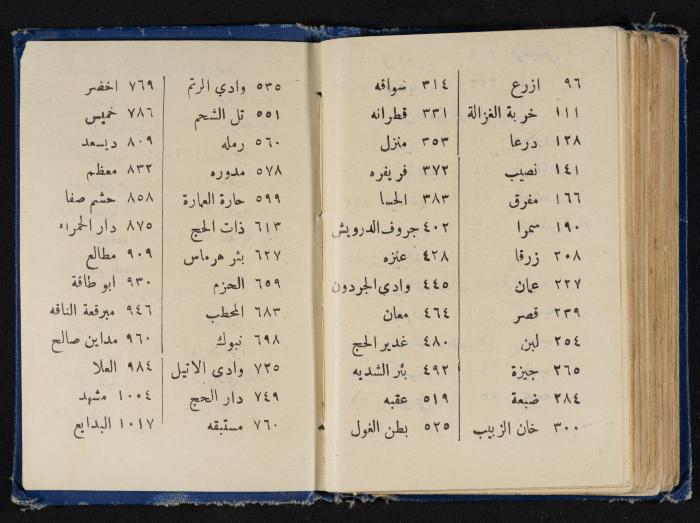 ٩٦ ازرع
١١١ خربة الغزالة
١٢٨ درعا
١٤١ نصيب
١٦٦ مفرق
١٩٠ سمرا
٢٠٨ زرقا
٢٢٧ عمان
٢٣٩ قصر
٢٥٤ لبن
٢٦٥ جيزة
٢٨٤ ضبعة
٣٠٠ خان الزبيب
٣١٤ سواقه
٣٣١ قطرانه
٣٥٣ منزل
٣٧٢ فريفره
٣٨٣ الحسا
٤٠٢ جروف الدرويش
٤٢٨ عنزه
٤٤٥ وادي الجردون
٤٦٤ معان
٤٨٠ غدير الحج
٤٩٢ بئر الشديه
٥١٩ عقبه
٥٢٥ بطن الغول
٥٣٥ وادي الرتم
٥٥١ تل الشحم
٥٦٠ رمله
٥٧٨ مدوره
٥٩٩ حارة العمارة
٦١٣ ذات الحج
٦٢٧ بئر هرماس
٦٥٩ الحزم
٦٨٣ المحطب
٦٩٨ تبوك
٧٢٥ وادى الاتيل
٧٤٩ دار الحج
٧٦٠ مستبقه
٧٦٩ اخضر
٧٨٦ خميس
٨٠٩ ديسعد
٨٣٢ معظم
٨٥٨ خشم صفا
٨٧٥ دار الحمراء
٩٠٩ مطالع
٩٣٠ ابو طاقة
٩٤٦ مبرقعة الناقه
٩٦٠ مداين صالح
٩٨٤ العلا
١٠٠٤ مشهد
١٠١٧ البدايع